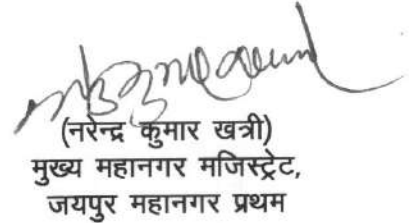 (नरेन्द्र कुमार खत्री)
मुख्य महानगर मजिस्ट्रेट,
जयपुर महानगर प्रथम